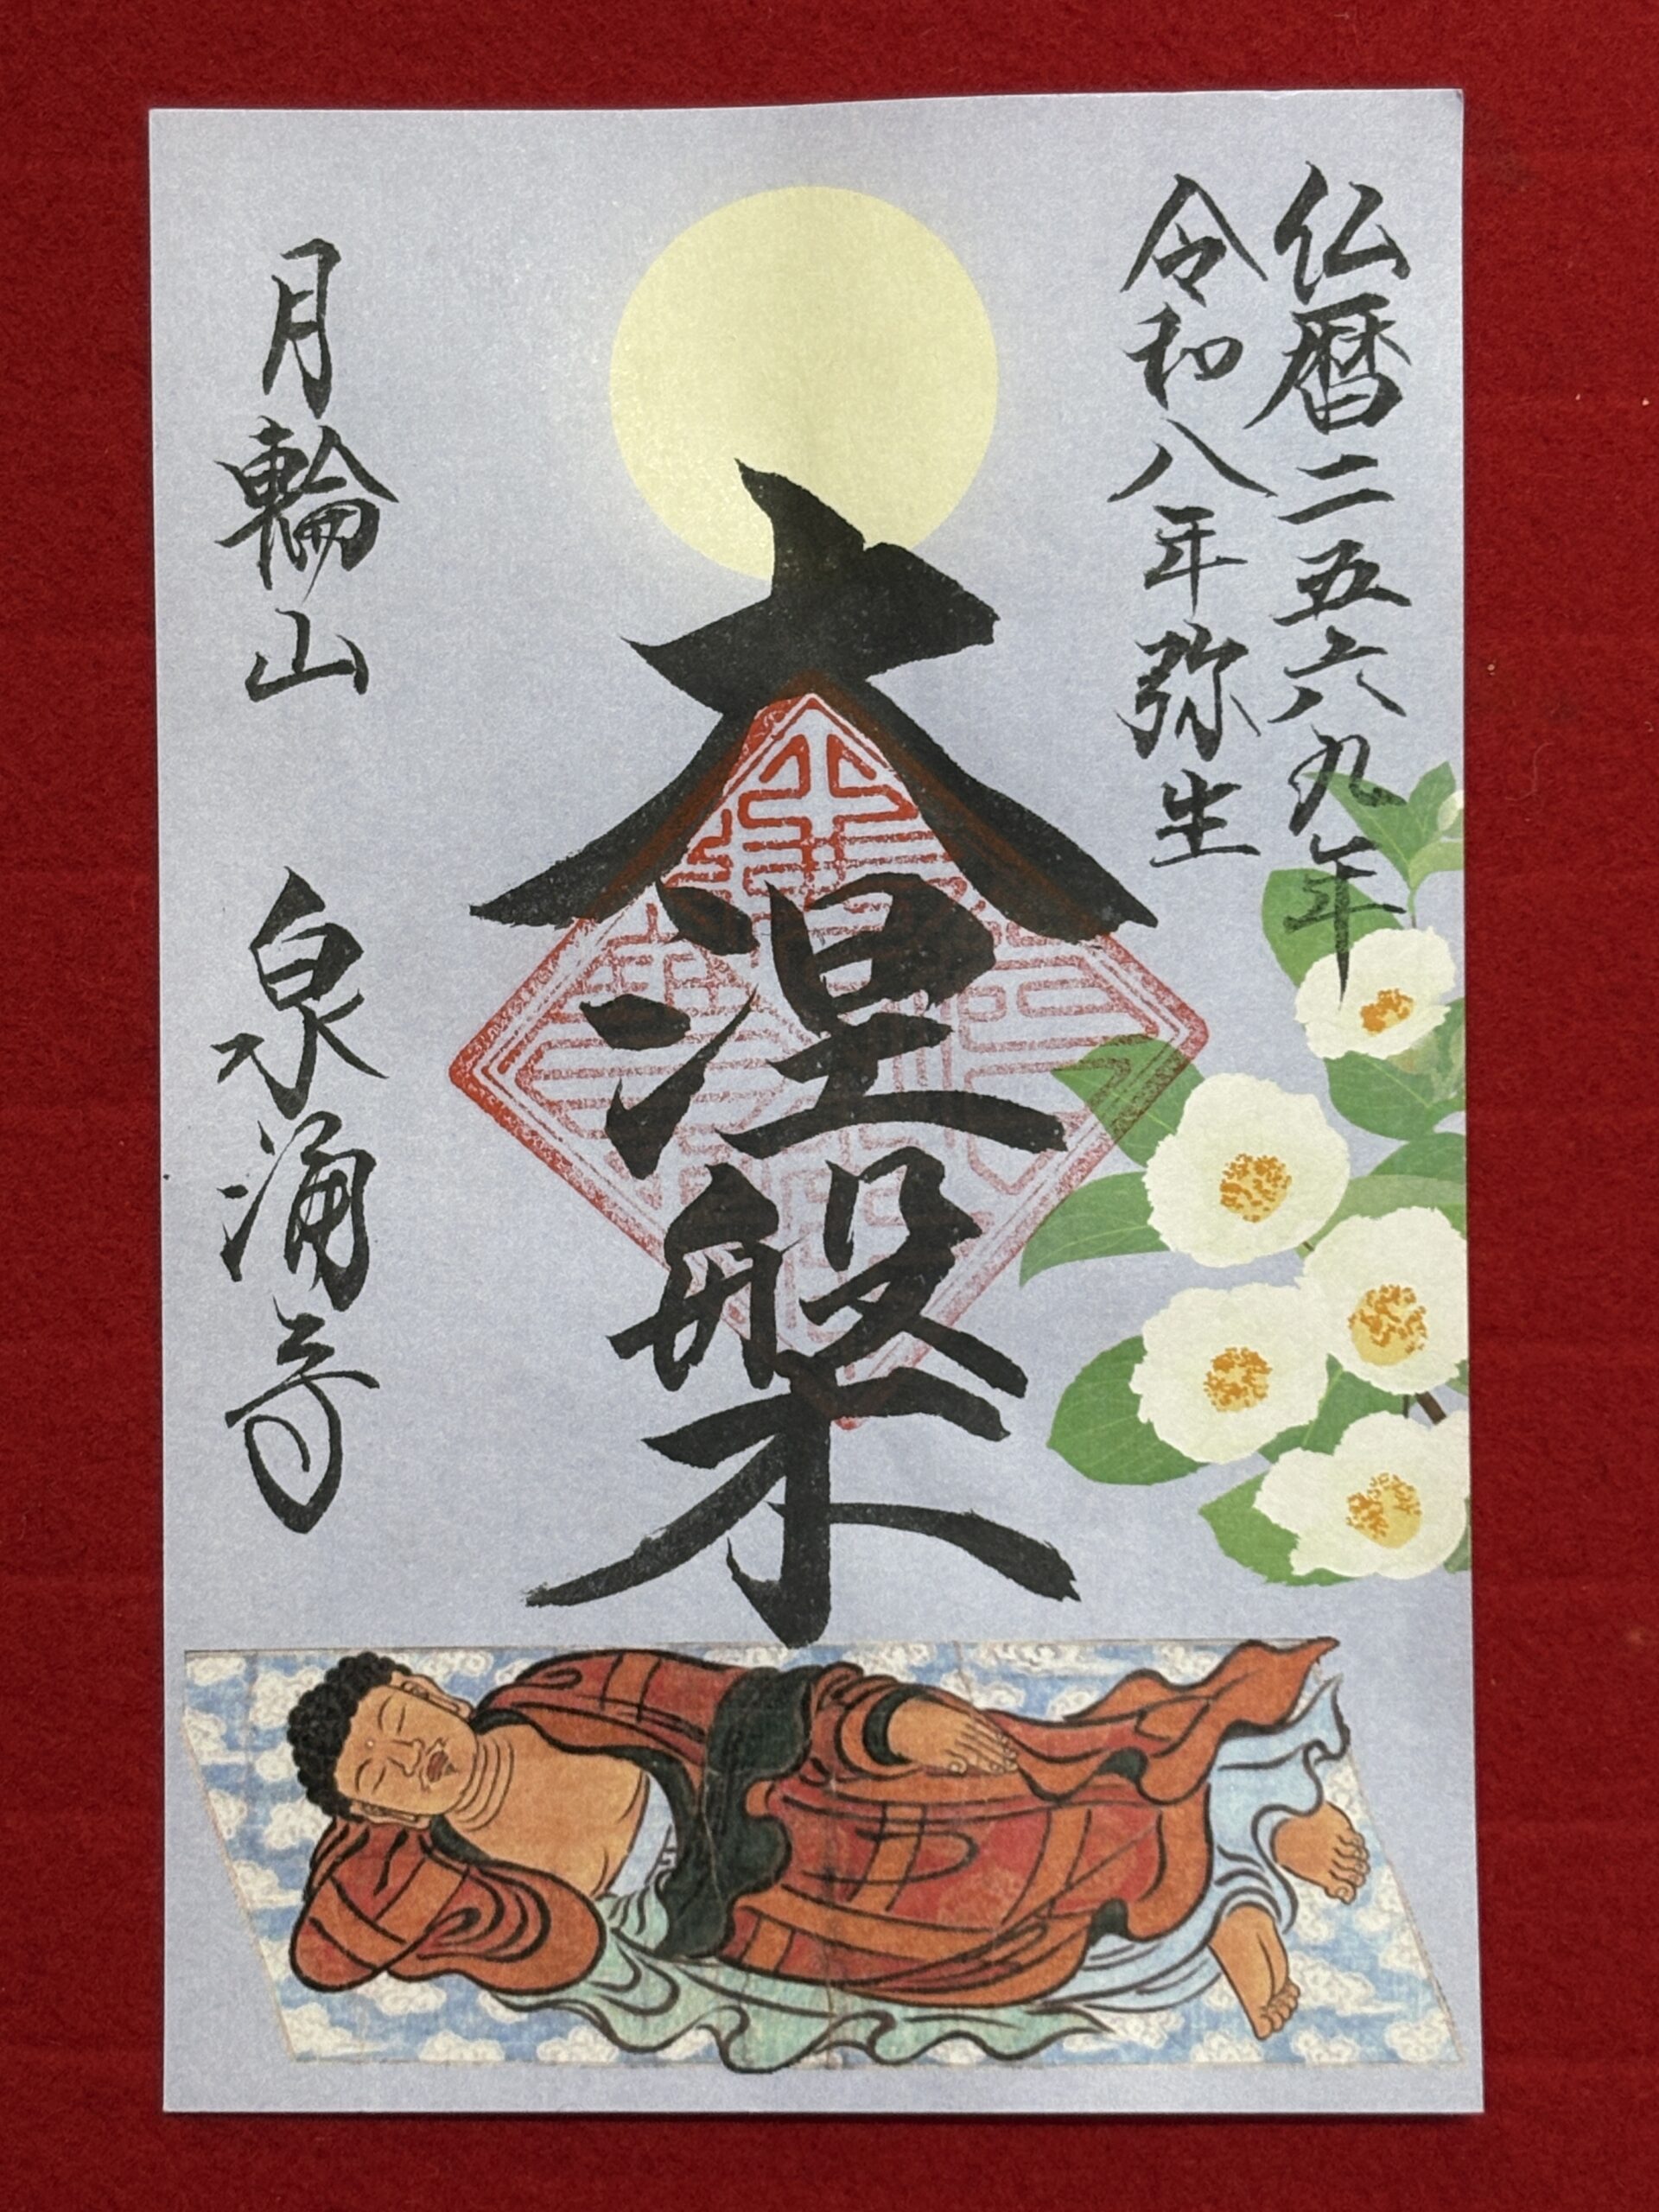 仏暦二五六九年
令和八年弥生
大涅槃
月輪山 泉涌寺